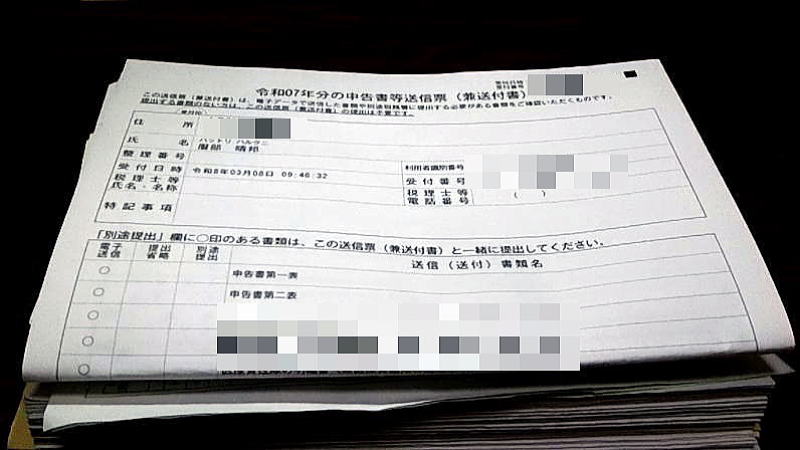 受付日時
受付番号
令和07年分の申告書等送信票（兼送付書）
この送信票（兼送付書）は、電子データで送信した書類や別途税務署に提出する必要がある書類をご確認いただくものです。
提出する書類のない方は、この送信票（兼送付書）の提出は不要です。
住所
氏名
ハットリ ハルクニ
服部 晴邦
整理番号
利用者識別番号
受付日時
令和8年03月08日 09:46:32
受付番号
税理士等
氏名・名称
税理士等
電話番号
( )
特記事項
「別途提出」欄に○印のある書類は、この送信票（兼送付書）と一緒に提出してください。
電子
送信
提出
省略
別途
提出
送信（送付）書類名
○
申告書第一表
○
申告書第二表
○
○
○